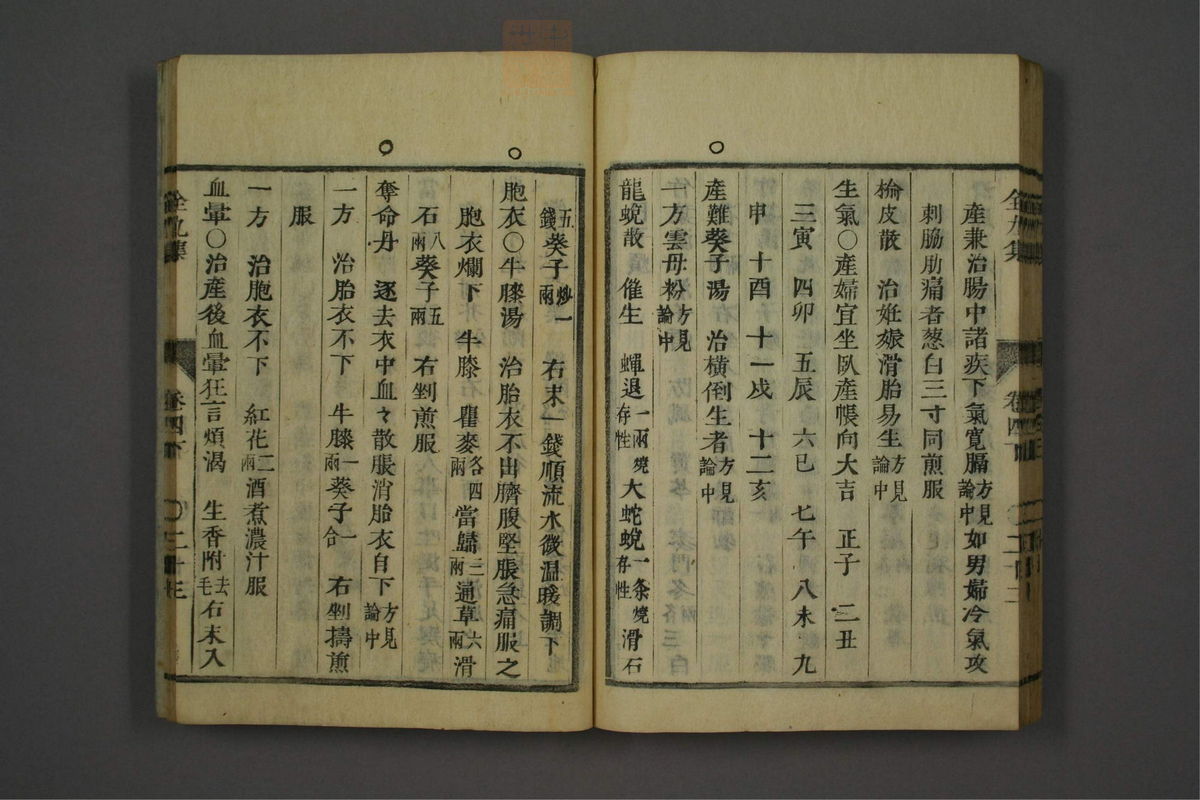 產兼治腸中諸疾下氣寬膈方見論中如男婦冷氣攻
刺脇肋痛者葱白三寸同煎服
楡皮散　治妊娠滑胎易生方見論中
生氣〇產婦宜坐臥產帳向大吉　正子　二丑
三寅　四卯　五辰　六巳　七午　八未　九
申　十酉　十一戍　十二亥
產難葵子湯　治横倒生者方見論中
一方雲母粉方見論中
龍蛻散　催生　蟬退一兩燒存性大蛇蛻一条燒存性滑石
五錢葵子炒一兩　右末一錢順流水微温暖調下
胞衣〇牛膝湯　治胎衣不出臍腹堅脹急痛服之
胞衣爛下　牛膝　瞿麥各四兩當歸三兩通草六兩滑
石八兩葵子五兩　右剉煎服
奪命丹　逐去衣中血々散脹消胎衣自下方見論中
一方　治胎衣不下　牛膝一兩葵子一合　右剉擣煎
服
一方　治胞衣不下　紅花二兩酒煮濃汁服
血暈〇治產後血暈狂言煩渴　生香附去毛右末入
全九集
卷四下
〇二十三